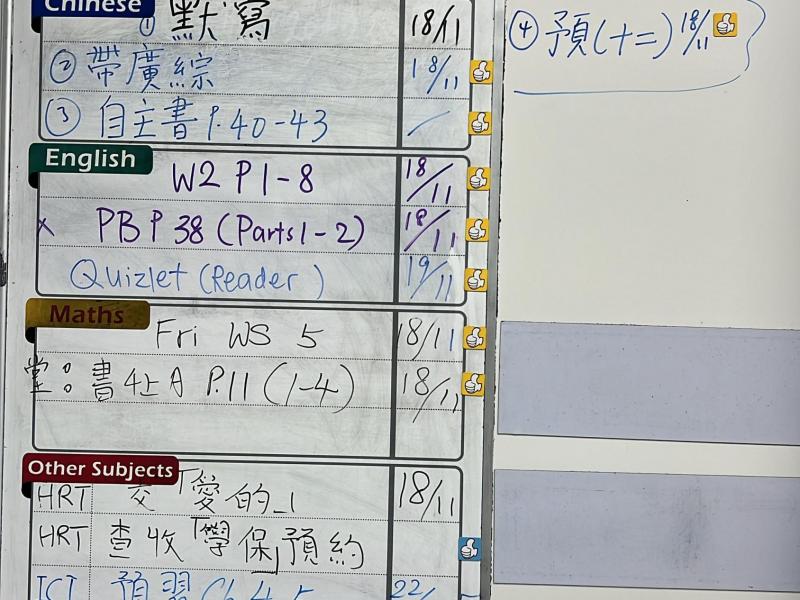 Chinese
① 默寫 18/11
② 帶廣綜 18/11
③ 自主書 P.40-43
④ 預(十二) 18/11
English
W2 P1-8 18/11
× PB P 38 (Parts 1-2) 18/11
Quizlet (Reader) 19/11
Maths
Fri WS 5 18/11
堂: 書4上A P.11 (1-4) 18/11
Other Subjects
HRT 交「愛的 18/11
HRT 查收「學保」預約
ICT 預習 Ch 4.5 22/